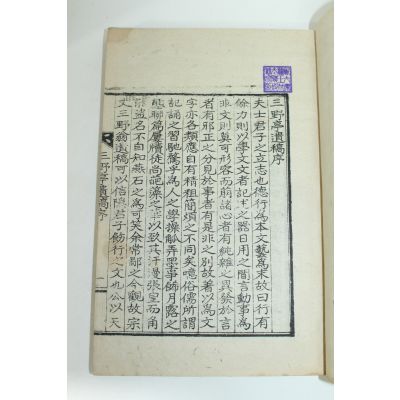 三野亭遺稿序
夫士君子之立志也德行爲本文藝爲末故曰行有
餘力則以學文文者記事之器日用之間言動事爲
非文則莫可形容而萌諸心者有純雜之異發於言
者有邪正之分見於事者有是非之別故著以爲文
字亦各類應自有精粗簡煩之不同矣噫俗儒所謂
記誦之習馳騖乎爲人之學操觚弄墨事飾月露之
態聯篇屢牘徒尚葩藻之 以致其汗漫張皇而角
 盜名不自知燕石之爲可笑余常鄙之今觀故宗
丈三野翁遺稿可以信 君子飭行之文也公以天
三野亭遺稿序
一